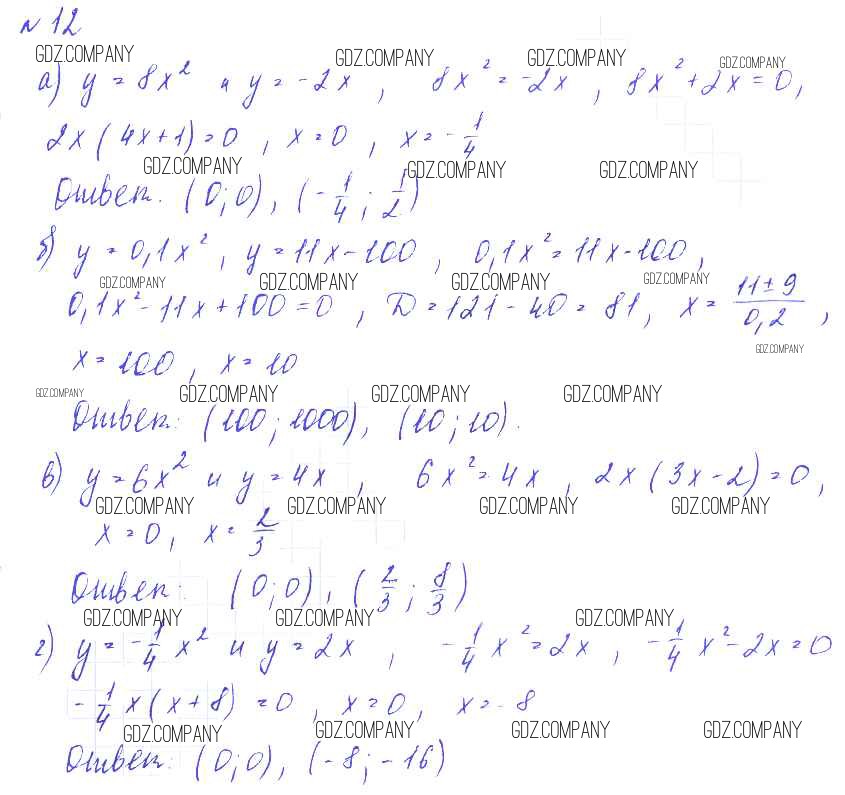 № 12
GDZ.COMPANY GDZ.COMPANY GDZ.COMPANY GDZ.COMPANY
а) y = 8x² и y = -2x , 8x² = -2x , 8x² + 2x = 0,
2x(4x+1) = 0 , x = 0 , x = -1/4
GDZ.COMPANY GDZ.COMPANY GDZ.COMPANY
Ответ: (0;0), (-1/4 ; 1/2)
б) y = 0,1x² , y = 11x - 100 , 0,1x² = 11x - 100 ,
GDZ.COMPANY GDZ.COMPANY GDZ.COMPANY GDZ.COMPANY
0,1x² - 11x + 100 = 0 , D = 121 - 40 = 81 , x = (11 ± 9)/0,2 ,
GDZ.COMPANY
x = 100 , x = 10
GDZ.COMPANY GDZ.COMPANY GDZ.COMPANY GDZ.COMPANY
Ответ: (100 ; 1000), (10 ; 10).
в) y = 6x² и y = 4x , 6x² = 4x , 2x(3x - 2) = 0 ,
GDZ.COMPANY GDZ.COMPANY GDZ.COMPANY GDZ.COMPANY
x = 0 , x = 2/3
Ответ: (0;0), (2/3 ; 8/3)
GDZ.COMPANY GDZ.COMPANY GDZ.COMPANY
г) y = -1/4 x² и y = 2x , -1/4 x² = 2x , -1/4 x² - 2x = 0
-1/4 x(x + 8) = 0 , x = 0 , x = -8
GDZ.COMPANY GDZ.COMPANY GDZ.COMPANY GDZ.COMPANY
Ответ: (0;0), (-8 ; -16)